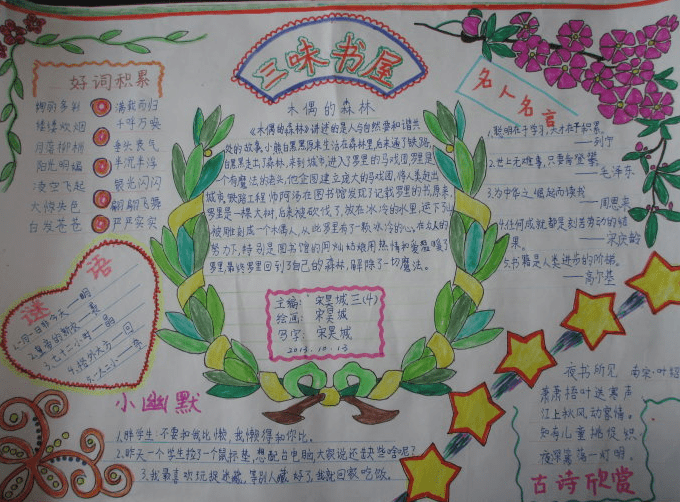 三味书屋
好词积累
婀娜多彩 满载而归
缕缕炊烟 千呼万唤
月落柳梢 垂头丧气
阳光明媚 半沉半浮
凌空飞起 银光闪闪
大惊失色 翩翩飞舞
白发苍苍 严严实实
木偶的森林
《木偶的森林》讲述的是人与自然要和谐共
处的故事。小熊白黑黑原来生活在森林里,后来通了铁路,
白黑黑走出了森林,来到城市,进入了罗里的马戏团,罗里是
一个有魔法的老头,他企图建立庞大的马戏团,将人类赶出
城市,铁路工程师阿汤在图书馆发现了记载罗里的书,原来
罗里是一棵大树,后来被砍伐了,放在冰冷的水里,运下山
被雕刻成一个木偶人,从此罗里有了一颗冰冷的心,在众人的
努力下,特别是图书馆的阿灿姑娘用热情和爱温暖了
罗里,最终罗里回到了自己的森林,解除了一切魔法。
主编: 宋昊城 三(4)
绘画: 宋昊城
写字: 宋昊城
2013.10.13
名人名言
1.聪明在于学习,天才在于积累。
——列宁
2.世上无难事,只要肯登攀。
——毛泽东
3.为中华之崛起而读书
——周恩来
4.任何成就都是刻苦劳动的结
果。 ——宋庆龄
5.书籍是人类进步的阶梯。
——高尔基
谜语
小幽默
1.胖学生:不要和我比懒,我懒得和你比。
2.昨天一个学生捡了个鼠标垫,想配台电脑,大家说还差些啥呢?
3.我最喜欢玩捉迷藏,等别人藏好了,我就回家吃饭。
夜书所见 南宋·叶绍
萧萧梧叶送寒声
江上秋风动客情。
知有儿童挑促织
夜深篱落一灯明。
古诗欣赏